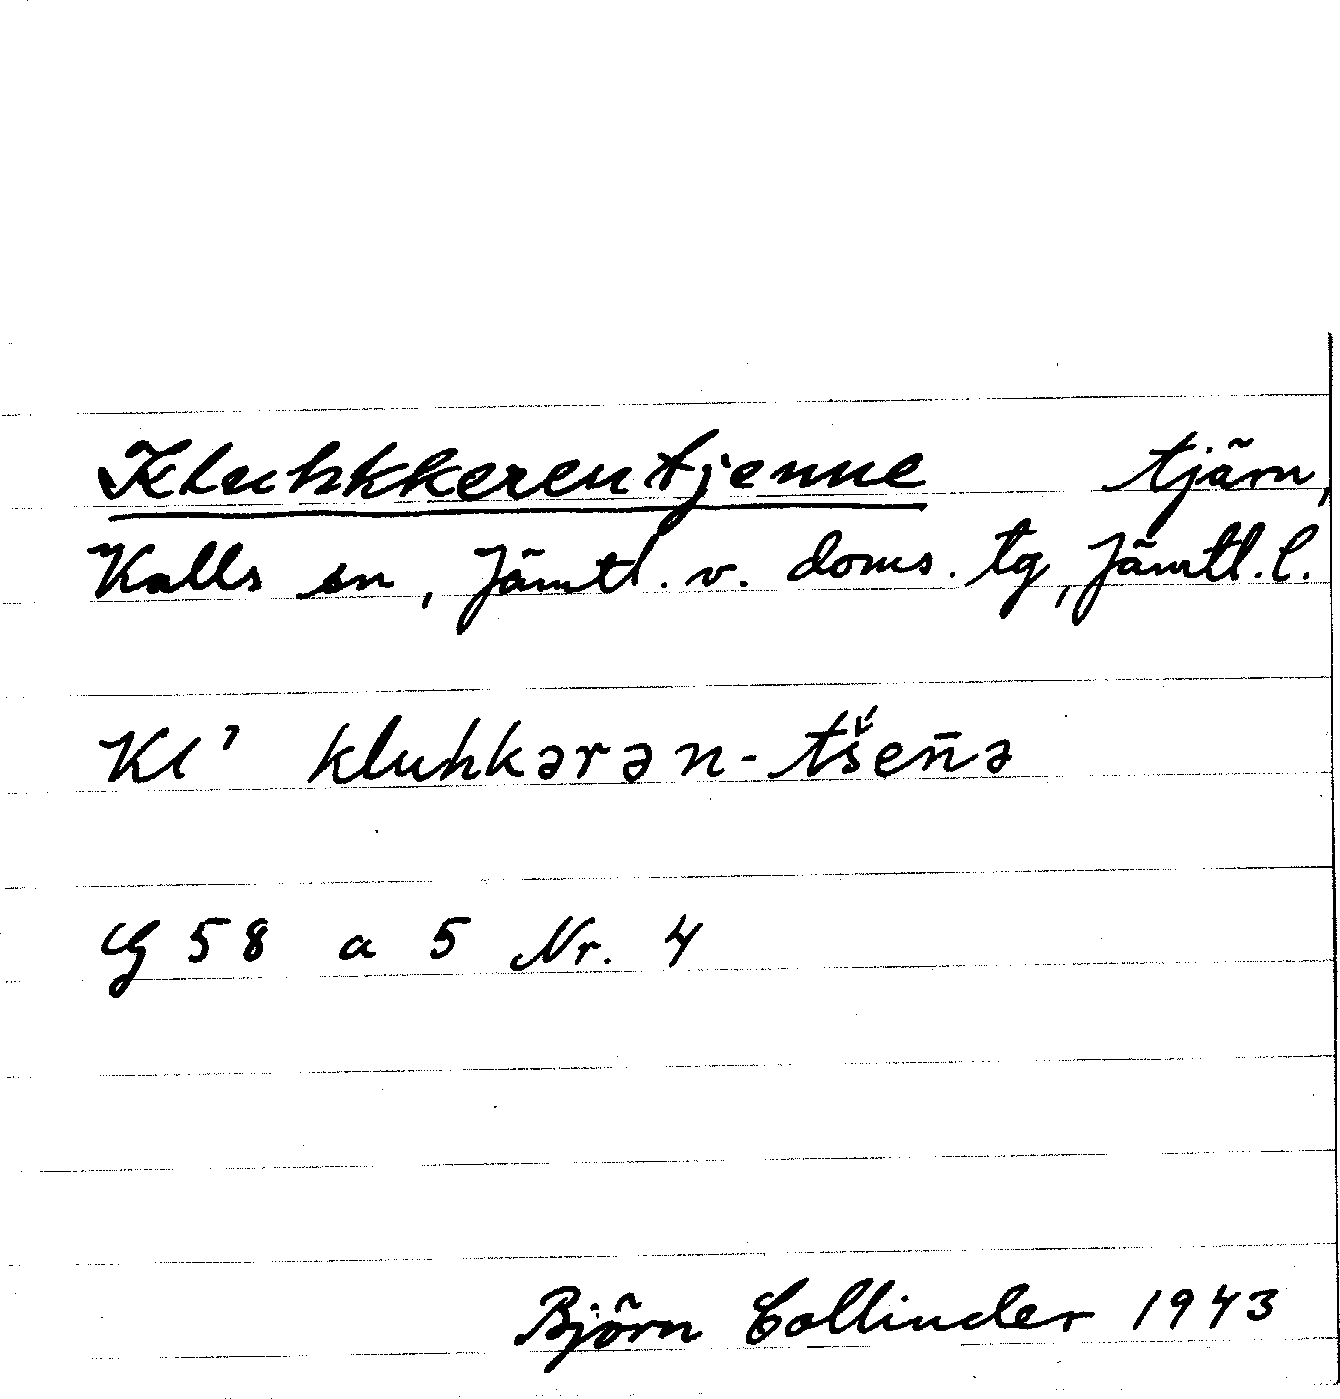 Kluhkkerentjenne tjärn,
Kalls sn, Jämtl. v. doms. tg, Jämtl. l.
Kl' kluhkǝrǝn-tšen̄ǝ
G 58 a 5 Nr. 4
Björn Collinder 1943